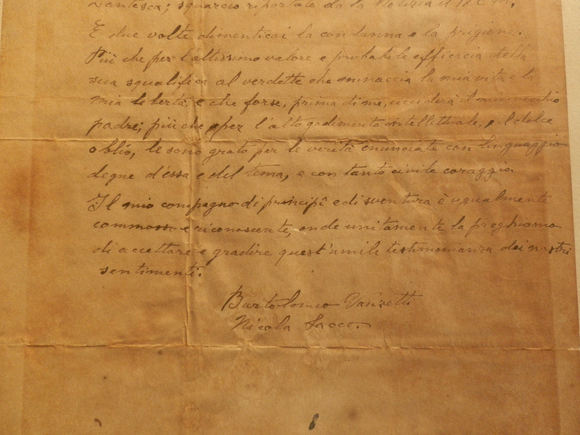 Dantesca; squarcio riportato da la Notizia il 18 C.M.
E due volte dimenticai la condanna e la prigione.
Più che per l'altissimo valore e probabile efficacia della
sua squalifica al verdetto che minaccia la mia vita e la
mia libertà e che forse, prima di me, ucciderà il mio vecchio
padre; più che per l'alto godimento intellettuale, e il dolce
oblio, le sono grato per le verità enunciate con linguaggio
degne d'essa e del tema, e con tanto civile coraggio.
Il mio compagno di principî e di sventura è ugualmente
commosso e riconoscente, onde unitamente la preghiamo
di accettare e gradire quest'umile testimonianza dei nostri
sentimenti.
Bartolomeo Vanzetti
Nicola Sacco.